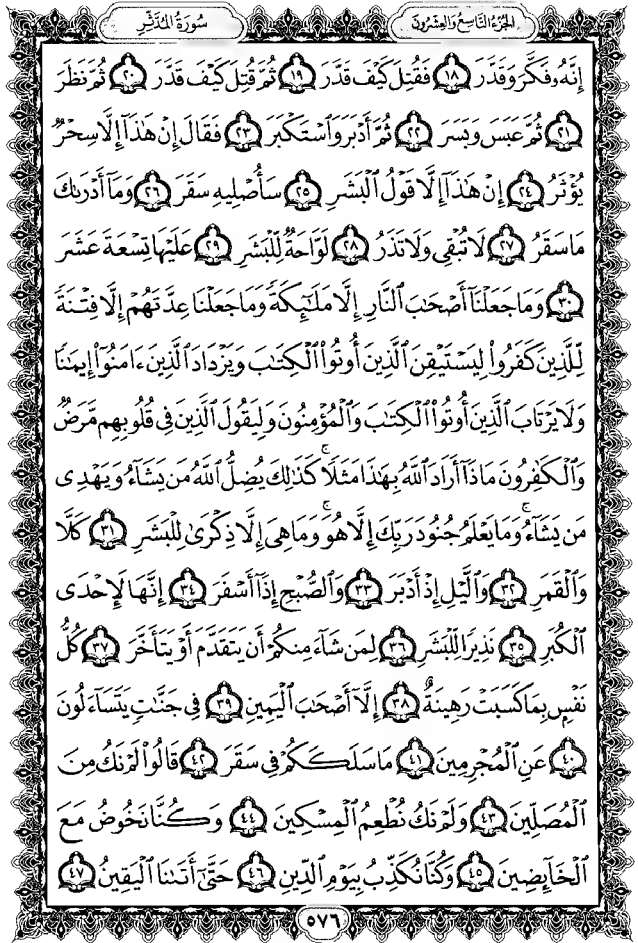 الجزء التاسع والعشرون سورة المدثر
إِنَّهُۥ فَكَّرَ وَقَدَّرَ ١٨ فَقُتِلَ كَيْفَ قَدَّرَ ١٩ ثُمَّ قُتِلَ كَيْفَ قَدَّرَ ٢٠ ثُمَّ نَظَرَ
٢١ ثُمَّ عَبَسَ وَبَسَرَ ٢٢ ثُمَّ أَدْبَرَ وَٱسْتَكْبَرَ ٢٣ فَقَالَ إِنْ هَٰذَآ إِلَّا سِحْرٌ
يُؤْثَرُ ٢٤ إِنْ هَٰذَآ إِلَّا قَوْلُ ٱلْبَشَرِ ٢٥ سَأُصْلِيهِ سَقَرَ ٢٦ وَمَآ أَدْرَىٰكَ
مَا سَقَرُ ٢٧ لَا تُبْقِى وَلَا تَذَرُ ٢٨ لَوَّاحَةٌ لِّلْبَشَرِ ٢٩ عَلَيْهَا تِسْعَةَ عَشَرَ
٣٠ وَمَا جَعَلْنَآ أَصْحَٰبَ ٱلنَّارِ إِلَّا مَلَٰٓئِكَةً وَمَا جَعَلْنَا عِدَّتَهُمْ إِلَّا فِتْنَةً
لِّلَّذِينَ كَفَرُوا۟ لِيَسْتَيْقِنَ ٱلَّذِينَ أُوتُوا۟ ٱلْكِتَٰبَ وَيَزْدَادَ ٱلَّذِينَ ءَامَنُوٓا۟ إِيمَٰنًا
وَلَا يَرْتَابَ ٱلَّذِينَ أُوتُوا۟ ٱلْكِتَٰبَ وَٱلْمُؤْمِنُونَ وَلِيَقُولَ ٱلَّذِينَ فِى قُلُوبِهِم مَّرَضٌ
وَٱلْكَٰفِرُونَ مَاذَآ أَرَادَ ٱللَّهُ بِهَٰذَا مَثَلًا ۚ كَذَٰلِكَ يُضِلُّ ٱللَّهُ مَن يَشَآءُ وَيَهْدِى
مَن يَشَآءُ ۚ وَمَا يَعْلَمُ جُنُودَ رَبِّكَ إِلَّا هُوَ ۚ وَمَا هِىَ إِلَّا ذِكْرَىٰ لِلْبَشَرِ ٣١ كَلَّا
وَٱلْقَمَرِ ٣٢ وَٱلَّيْلِ إِذْ أَدْبَرَ ٣٣ وَٱلصُّبْحِ إِذَآ أَسْفَرَ ٣٤ إِنَّهَا لَإِحْدَى
ٱلْكُبَرِ ٣٥ نَذِيرًا لِّلْبَشَرِ ٣٦ لِمَن شَآءَ مِنكُمْ أَن يَتَقَدَّمَ أَوْ يَتَأَخَّرَ ٣٧ كُلُّ
نَفْسٍۭ بِمَا كَسَبَتْ رَهِينَةٌ ٣٨ إِلَّآ أَصْحَٰبَ ٱلْيَمِينِ ٣٩ فِى جَنَّٰتٍ يَتَسَآءَلُونَ
٤٠ عَنِ ٱلْمُجْرِمِينَ ٤١ مَا سَلَكَكُمْ فِى سَقَرَ ٤٢ قَالُوا۟ لَمْ نَكُ مِنَ
ٱلْمُصَلِّينَ ٤٣ وَلَمْ نَكُ نُطْعِمُ ٱلْمِسْكِينَ ٤٤ وَكُنَّا نَخُوضُ مَعَ
ٱلْخَآئِضِينَ ٤٥ وَكُنَّا نُكَذِّبُ بِيَوْمِ ٱلدِّينِ ٤٦ حَتَّىٰٓ أَتَىٰنَا ٱلْيَقِينُ ٤٧
٥٧٦